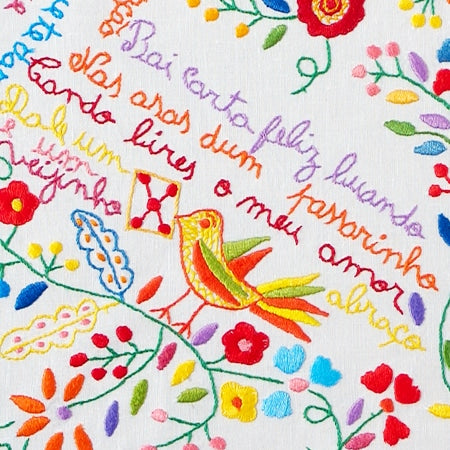 Bai carta feliz buando
Nas asas dum passarinho
Cando bires o meu amor
Da le um abraço
e um
Veijinho